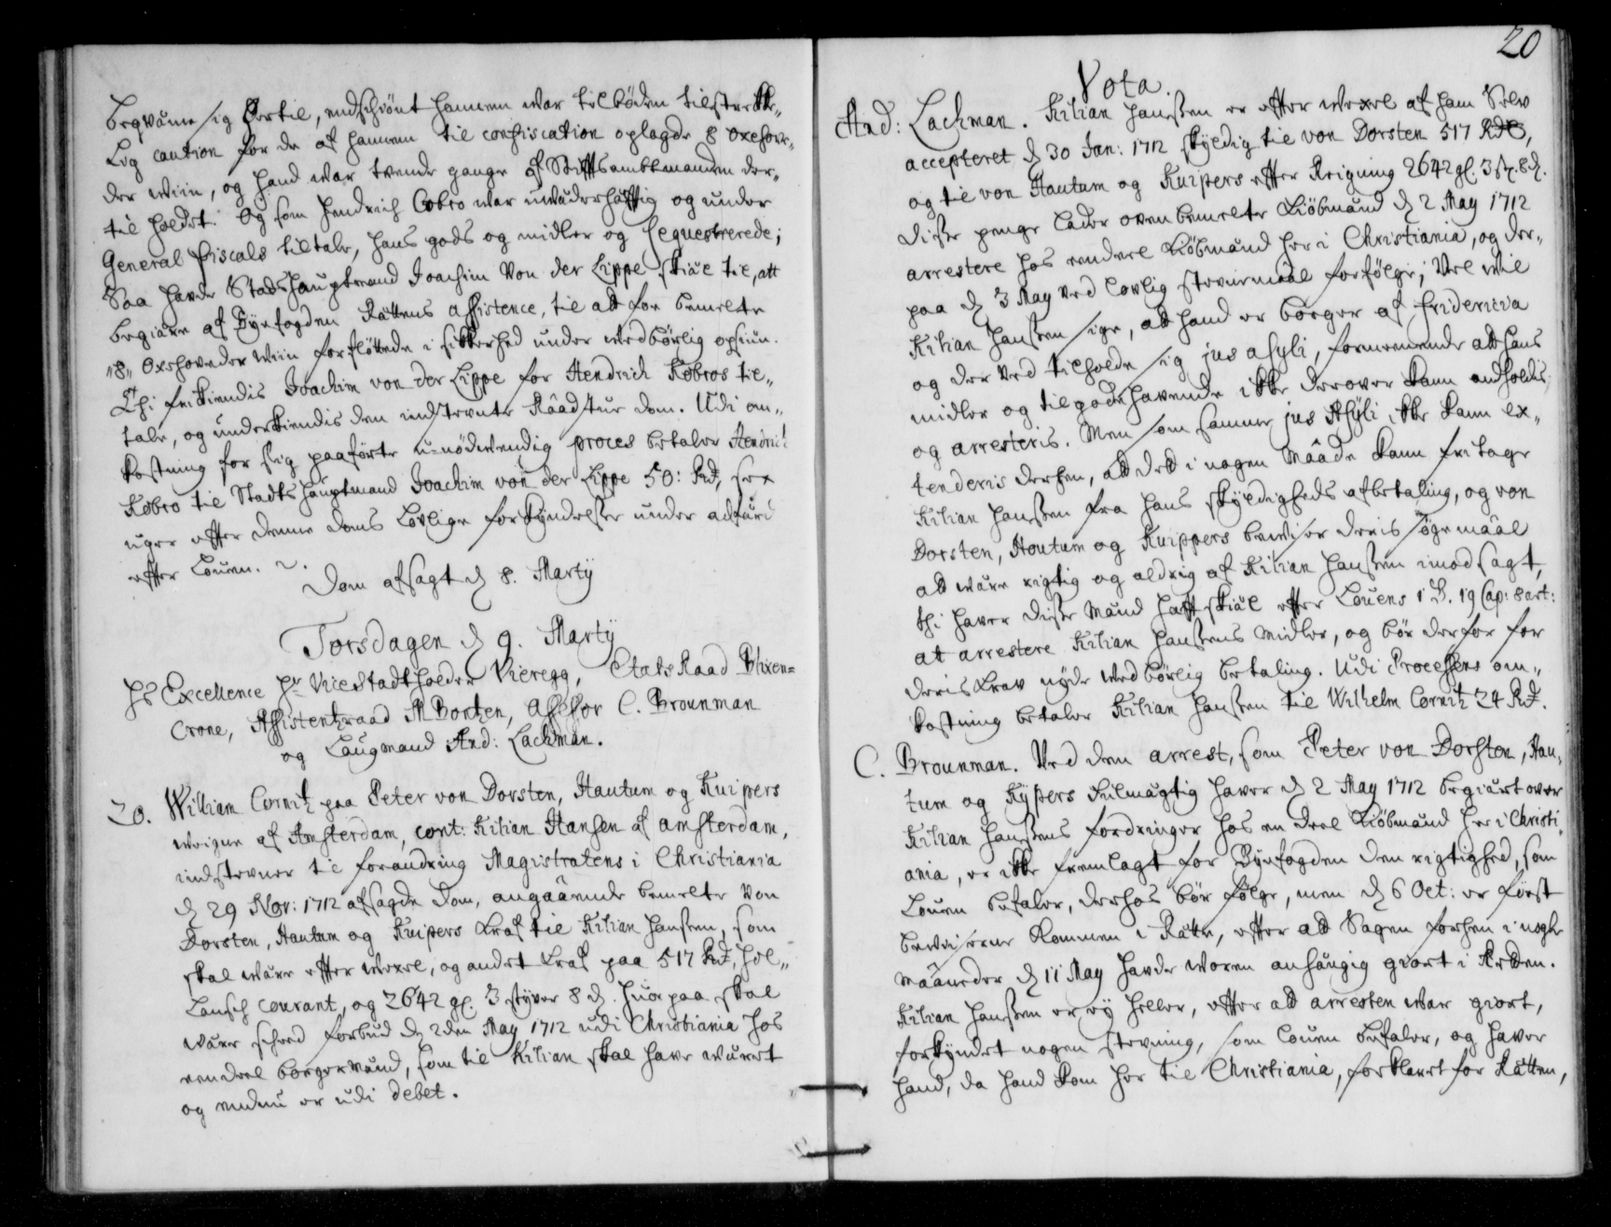 beqväme sig her til, endschiönt hannem war tilböden tilstrekke„
lig caution for de af hannem til confiscation oplagde 8 oxehove„
der wiin, og hand war trende gange af Stifftsambtmanden der„
til holdet. Og som Hendrich Cobro war uvederhæfftig og under
General fiscals tiltale, hans gods og midler og seqvestrerede;
Saa hafde Stadshauptmand Joachim von der Lippe skiæl til, att
begiære af Byefogden Rættens assistence, til att faae bemelte
„8„ Oxehoveder wiin forfløttede i sikkerhed under wedbörlig opsiun.
Thi frikiendis Joachim von der Lippe for Hendrich Kobros til„
tale, og underkiendis den indstevnte Raadstue dom. Udi om„
kostning for slig paaförte u-nödwendig proces betaler Hendrich
Kobro til Stadtshauptmand Joachim von der Lippe 50: Rd, sex
uger efter denne doms Lovlige forkyndelse under adfærd
efter Loven.
Dom afsagt d 8. Marty
Torsdagen d 9. Marty
Hs Excellence Hr ViceStadtholder Vieregg, Etats Raad Blixen=
crone, Assistentzraad M Borthen, Assessor C. Brounman
og Laugmand And: Lachman.
20. William Cornitz paa Peter von Dorsten, Hautum og Kuipers
weigne af Amsterdam, cont: Kilian Hansen af amsterdam,
indstevner til forandring Magistratens i Christiania
d 29 Nov: 1712 afsagde Dom, angaaende bemelte von
Dorsten, Hautum og Kuipers Kraf til Kilian Hanssen, som
skal være efter wexel, og andet Kraf paa 517 Rd, Hol„
landsch courant, og 2642 gl. 3 styver 8 d. Huorpaa skal
være scheed forbud d 2den May 1712 udi Christiania hos
een deel borgermænd, som til Kilian skal have wæret
og endnu er udi debet.
20
Vota.
And: Lachman. Kilian Hanssen er efter wexel af ham Selv
accepteret d 30 Jan: 1712 skyldig til von Dorsten 517 Rdr,
og til von Hautum og Kuipers efter Reigning 2642 gl. 3 st. 8 d.
Disse penge lader ovenbemelte Kiöbmænd d 2 May 1712
arrestere hos eendeel Kiöbmænd her i Christiania, og der„
paa d 3 May ved lovlig stevnemaal forfölge; Vel wil
Kilian Hanssen sige, att hand er borger af fridericia
og der ved tilholde sig jus asyli, formeenende att hans
midler og tilgodehavende ikke derover kand andholdis
og arresteris. Men som samme jus Asyli ikke kand ex„
tenderis derhen, att det i nogen maade kand fritage
Kilian Hanssen fra hans skyldigheds afbetaling, og von
Dorsten, Houtum og Kuippers beviser deris sögemaal
att være rigtig og aldrig af Kilian Hanssen imodsagt,
thi haver disse mænd hafft skiæl efter Lovens 1 B. 19 Cap: 8 art:
at arrestere Kilian Hanssens midler, og bör derfor for
deris Krav nyde wedbörlig betaling. Udi Processens om„
kostning betaler Kilian Hanssen til Wilhelm Cornitz 24 Rd.
C. Brounman. Ved dend arrest, som Peter von Dorsten, Hau„
tum og Kypers fuldmægtig haver d 2 May 1712 begiært over
Kilian Hanssens fordringer hos en deel Kiöbmænd her i Christi„
ania, er ikke fremlagt for Byefogden den rigtighed, som
Loven befaler, derhos bör fölge, men d 6 Oct: er först
beviserne kommen i Rætte, efter att Sagen forhen i nogle
maaneder d 11 May hafde woren anhængig giort i Retten.
Kilian Hanssen er ey heller, efter att arresten war giort,
forkyndet nogen stevning, som loven befaler, og haver
hand, da hand kom her til Christiania, forklaret for Rætten,